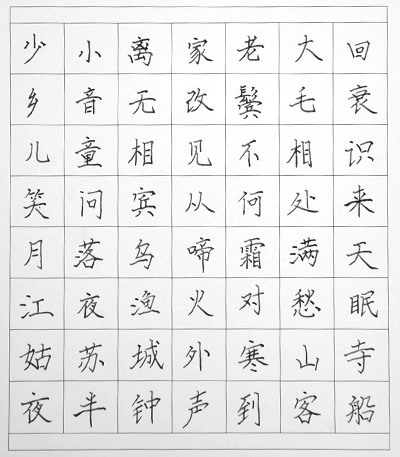 少小离家老大回
乡音无改鬓毛衰
儿童相见不相识
笑问宾从何处来
月落乌啼霜满天
江夜渔火对愁眠
姑苏城外寒山寺
夜半钟声到客船